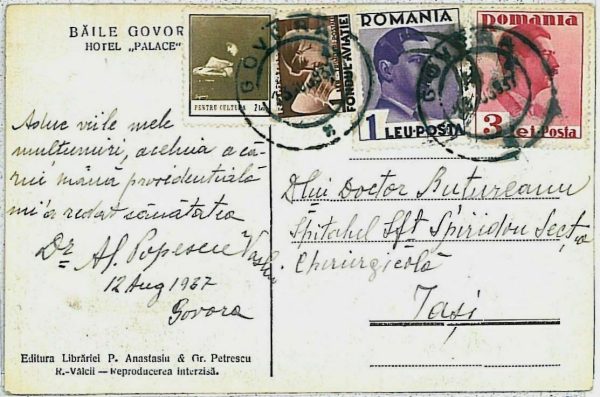 BĂILE GOVOR
HOTEL „PALACE"
PENTRU CULTURA 2 Lei
FONDUL AVIAȚIEI
ROMANIA
1 LEU-POSTA
Romania
3 Lei-Posta
GOVORA
GOVORA
Aduc viile mele
mulțumiri, aceluia a că-
rui mână providențială
mi'a redat sănătatea
Dr Al. Popescu Vaslui
12 Aug 1937
Govora
Dlui Doctor Butureanu
Spitalul Sft Spiridon Secția
Chirurgicolă
Iași
Editura Librăriei P. Anastasiu & Gr. Petrescu
R.-Vâlcii — Reproducerea interzisă.